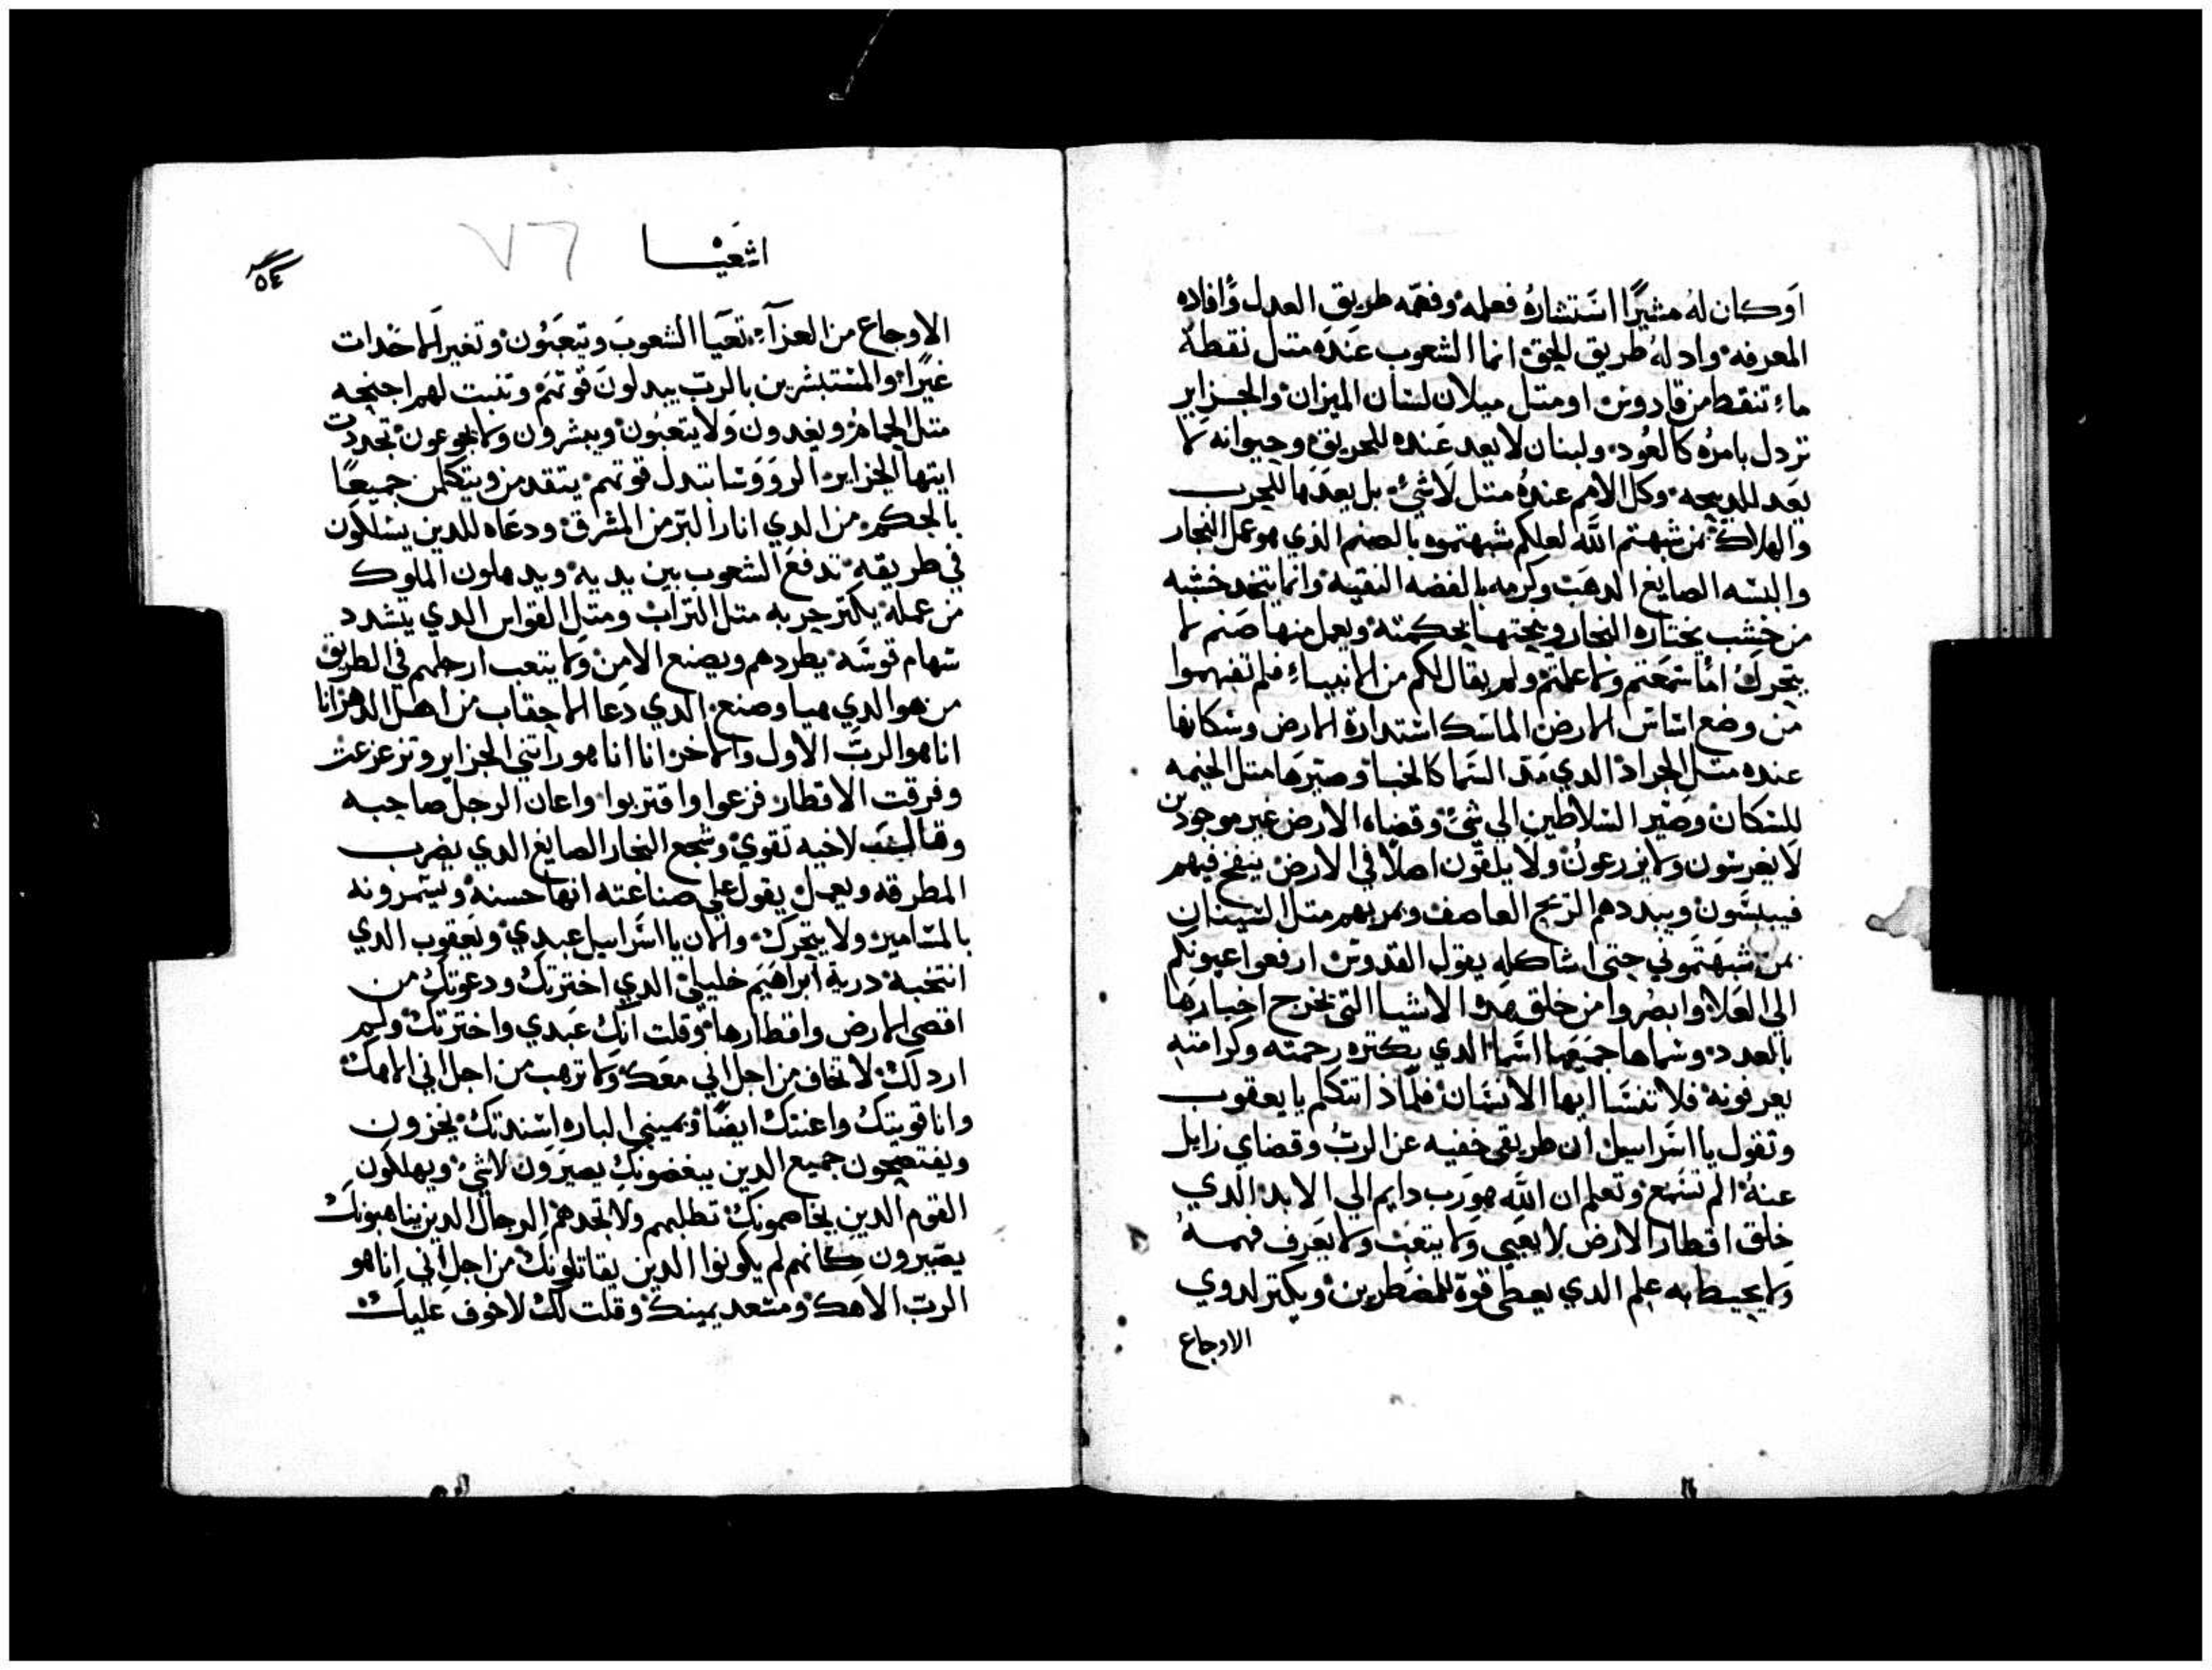 اوكان له مشيرًا استشاره فعلمه وفهمه طريق العدل وافاده
المعرفه وادله طريق الحق انما الشعوب عنده متل نقطة
ماء تنقط من قادوس او متل ميلان لسان الميزان والجزاير
تردل بامره كالعود ولبنان لا يعد عنده للحريق وحيوانه لا
يعد للدبيحه وكل الامم عنده متل لا شي بل يعدها للحرب
والهلاك بمن شبهتم الله لعلكم شبهتموه بالصنم الذي هو عمل النجار
والبسه الصايغ الدهب وكرمه بالفضه النقيه وانما يتخد خشبه
من خشب يختاره النجار وينحتها بحكمته ويعمل منها صنم لا
يتحرك اما سمعتم ولا علمتم ولم يقال لكم من الانبياء فلم تفهموا
من وضع اساس الارض الماسك استدارة الارض وسكانها
عنده متل الجراد الدي مد السما كالخبا وصيرها متل الخيمه
للسكان وصير السلاطين الي شي وقضاه الارض غير موجودين
لا يغرسون ولا يزرعون ولا يلقون اصلا في الارض ينفخ فيهم
فييبسون ويبددهم الريح العاصف ويمر بهم متل
بمن شبهتموني حتى اشاكله يقول القدوس ارفعوا عيونكم
الى العلا وابصروا من خلق هده الاشيا التي تخرج اخبارها
بالعدد وسماها جميعها اسما الدي بكتره رحمته وكرامته
يعرفونه فلا تنسا ايها الانسان فلماذا تتكلم يا يعقوب
وتقول يا اسراييل ان طريقي خفيه عن الرب وقضاي زايل
عنه الم تسمع وتعلم ان الله هو رب دايم الي الابد الدي
خلق اقطار الارض لا يعيي ولا يتعب ولا يعرف فهمه
ولا يحيط به علم الدي يعطي قوة للمضطرين ويكتر لدوي
الاوجاع
اشعيا
٧٦
٥٤
الاوجاع من العزاء تعيا الشعوب ويتعبون وتغير الاحدات
غيرًا والمستبشرين بالرب يبدلون قوتهم وتنبت لهم اجنحه
متل الحمام ويغدون ولا يتعبون ويبشرون ولا يجوعون تجددت
ايتها الجزاير الروؤسا تبدل قوتهم يتقدمن ويتكلمن جميعًا
بالحكم من الدي انار البر من المشرق ودعاه للدين يسلكون
في طريقه تدفع الشعوب بين يديه ويدهلون الملوك
من عمله يكتر حربه متل التراب ومتل القواس الدي يتشدد
سهام قوسه يطردهم ويصنع الامن ولا يتعب ارجلهم في الطريق
من هو الدي هيا وصنع الدي دعا الاحقاب من اصل الدهر انا
انا هو الرب الاول والاخر انا انا هو راتني الجزاير وتزعزعت
وفرقت الاقطار فزعوا واقتربوا واعان الرجل صاحبه
وقال لاخيه تقوي وشجع النجار الصايغ الدي يضرب
المطرقه ويعمل يقول علي صناعته انها حسنه ويسمرونه
بالمسامير ولا يتحرك والان يا اسراييل عبدي ويعقوب الدي
انتخبه درية ابراهيم خليلي الدي اخترتك ودعوتك من
اقصي الارض واقطارها وقلت انك عبدي واخترتك ولم
اردلك لا تخاف من اجل اني معك ولا ترهب من اجل اني الاهك
وانا قويتك واعنتك ايضًا وبميني الباره اسندتك يخزون
ويفتضحون جميع الدين يبغضونك يصيرون لا شي ويهلكون
القوم الدين يخاصمونك تطلبهم ولا تجدهم الرجال الدين يناصبونك
يصيرون كانهم لم يكونوا الدين يقاتلونك من اجل اني انا هو
الرب الاهك ومسعد يمينك وقلت لك لا خوف عليك